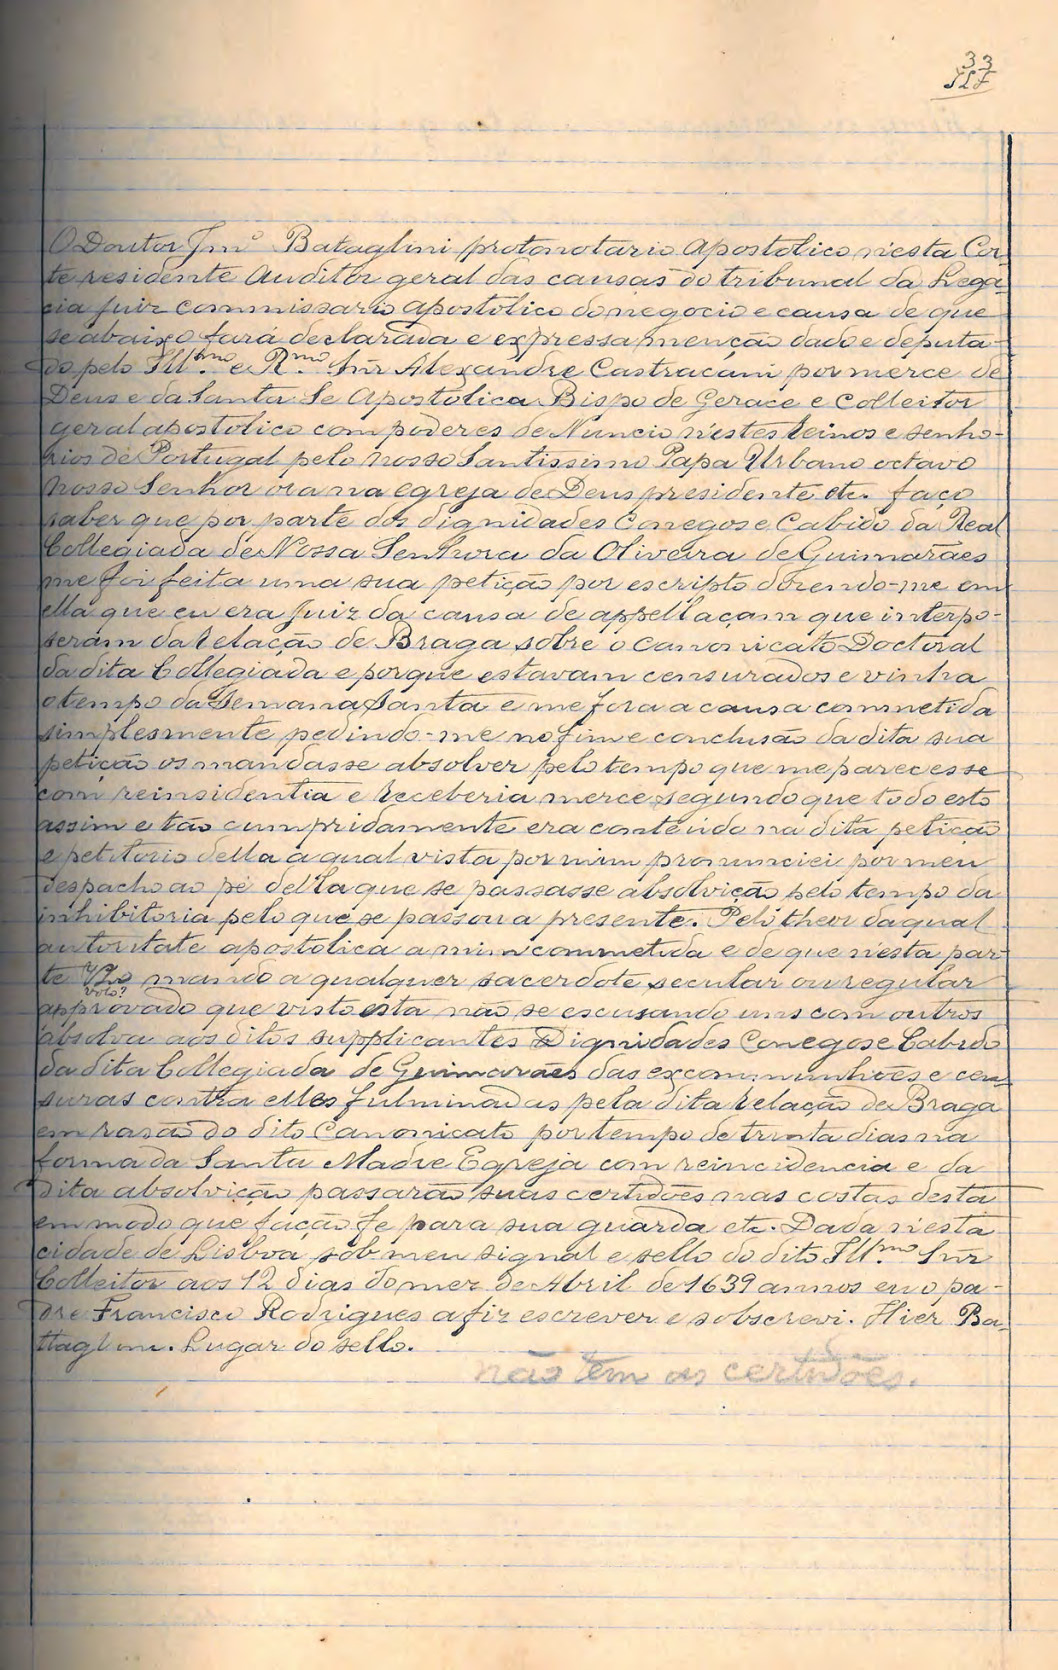 33
O Doutor Jmº Bataglini protonotario Apostolico n'esta Cor-
te residente Auditor geral das causas do tribunal da Lega-
cia juiz commissario apostolico do negocio e causa de que
se abaixo fará declarada e expressa menção dado e deputa-
do pelo Illmo. e Rmo. Snr Alexandre Castracani por merce de
Deus e da Santa Se Apostolica Bispo de Gerace e Colleitor
geral apostolico com poderes de Nuncio n'estes reinos e senho-
rios de Portugal pelo nosso Santissimo Papa Urbano octavo
Nosso Senhor óra na egreja de Deus presidente etc. faço
saber que por parte dos dignidades Conegos e Cabido da Real
Collegiada de Nossa Senhora da Oliveira de Guimarães
me foi feita uma sua petição por escripto dizendo-me em
ella que eu era Juiz da causa de appellaçam que interpo-
serám da relação de Braga sobre o canonicato Doctoral
da dita Collegiada e porque estavam censurados e vinha
o tempo da Semana Santa e me fora a causa commetida
simplesmente pedindo-me no fim e conclusão da dita sua
petição os mandasse absolver pelo tempo que me parecesse
com reinsidentia e receberia merce segundo que todo esto
assim e tão cumpridamente era contèudo na dita petição
e petitorio della a qual vista por mim pronunciei por meu
despacho ao pé della que se passasse absolvição pelo tempo da
inhibitoria pelo que se passou a presente. Pelo theor da qual
autoritate apostolica a mim commetida e de que n'esta par-
te uso mando a qualquer sacerdote secular ou regular
voto?
approvado que visto esta não se escusando uns com outros
absolva aos ditos supplicantes Dignidades Conegos e Cabido
da dita Collegiada de Guimarães das excommunhões e cen-
suras contra elles fulminadas pela dita relação de Braga
em rasão do dito Canonicato por tempo de trinta dias na
forma da Santa Madre Egreja com reincidencia e da
dita absolvição passarão suas certidões nas costas desta
em modo que fação fe para sua guarda etc. Dada n'esta
cidade de Lisboa sob meu signal e sello do dito Illmo. Snr
Colleitor aos 12 dias do mez de Abril de 1639 annos eu o pa-
dre Francisco Rodrigues a fiz escrever e sobscrevi. Hier Ba-
ttaglini. Lugar do sello.
não tem as certidões.